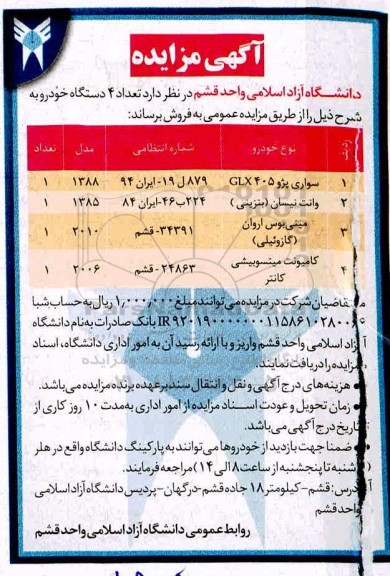 آگهی مزایده
دانشگاه آزاد اسلامی واحد قشم در نظر دارد تعداد ۴ دستگاه خودرو به
شرح ذیل را از طریق مزایده عمومی به فروش برساند:
ردیف نوع خودرو شماره انتظامی مدل تعداد
۱ سواری پژو ۴۰۵ GLX ۸۷۹ل۱۹-ایران ۹۴ ۱۳۸۸ ۱
۲ وانت نیسان (بنزینی) ۲۲۴ب۴۶-ایران ۸۴ ۱۳۸۵ ۱
۳ مینی‌بوس اروان (گازوئیلی) ۳۴۳۹۱-قشم ۲۰۱۰ ۱
۴ کامیونت میتسوبیشی کانتر ۲۴۸۶۳-قشم ۲۰۰۶ ۱
متقاضیان شرکت در مزایده می‌توانند مبلغ ۱,۰۰۰,۰۰۰ ریال به حساب شبا
بانک صادرات به نام دانشگاه
آزاد اسلامی واحد قشم واریز و با ارائه رسید آن به امور اداری دانشگاه، اسناد
مزایده را دریافت نمایند.
● هزینه‌های درج آگهی و نقل و انتقال سند بر عهده برنده مزایده می‌باشد.
● زمان تحویل و عودت اسناد مزایده از امور اداری به مدت ۱۰ روز کاری از
تاریخ درج آگهی می‌باشد.
● ضمنا جهت بازدید از خودروها می‌توانند به پارکینگ دانشگاه واقع در هلر
(شنبه تا پنجشنبه از ساعت ۸ الی ۱۴) مراجعه فرمایند.
آدرس: قشم-کیلومتر ۱۸ جاده قشم-درگهان-پردیس دانشگاه آزاد اسلامی
واحد قشم
روابط عمومی دانشگاه آزاد اسلامی واحد قشم